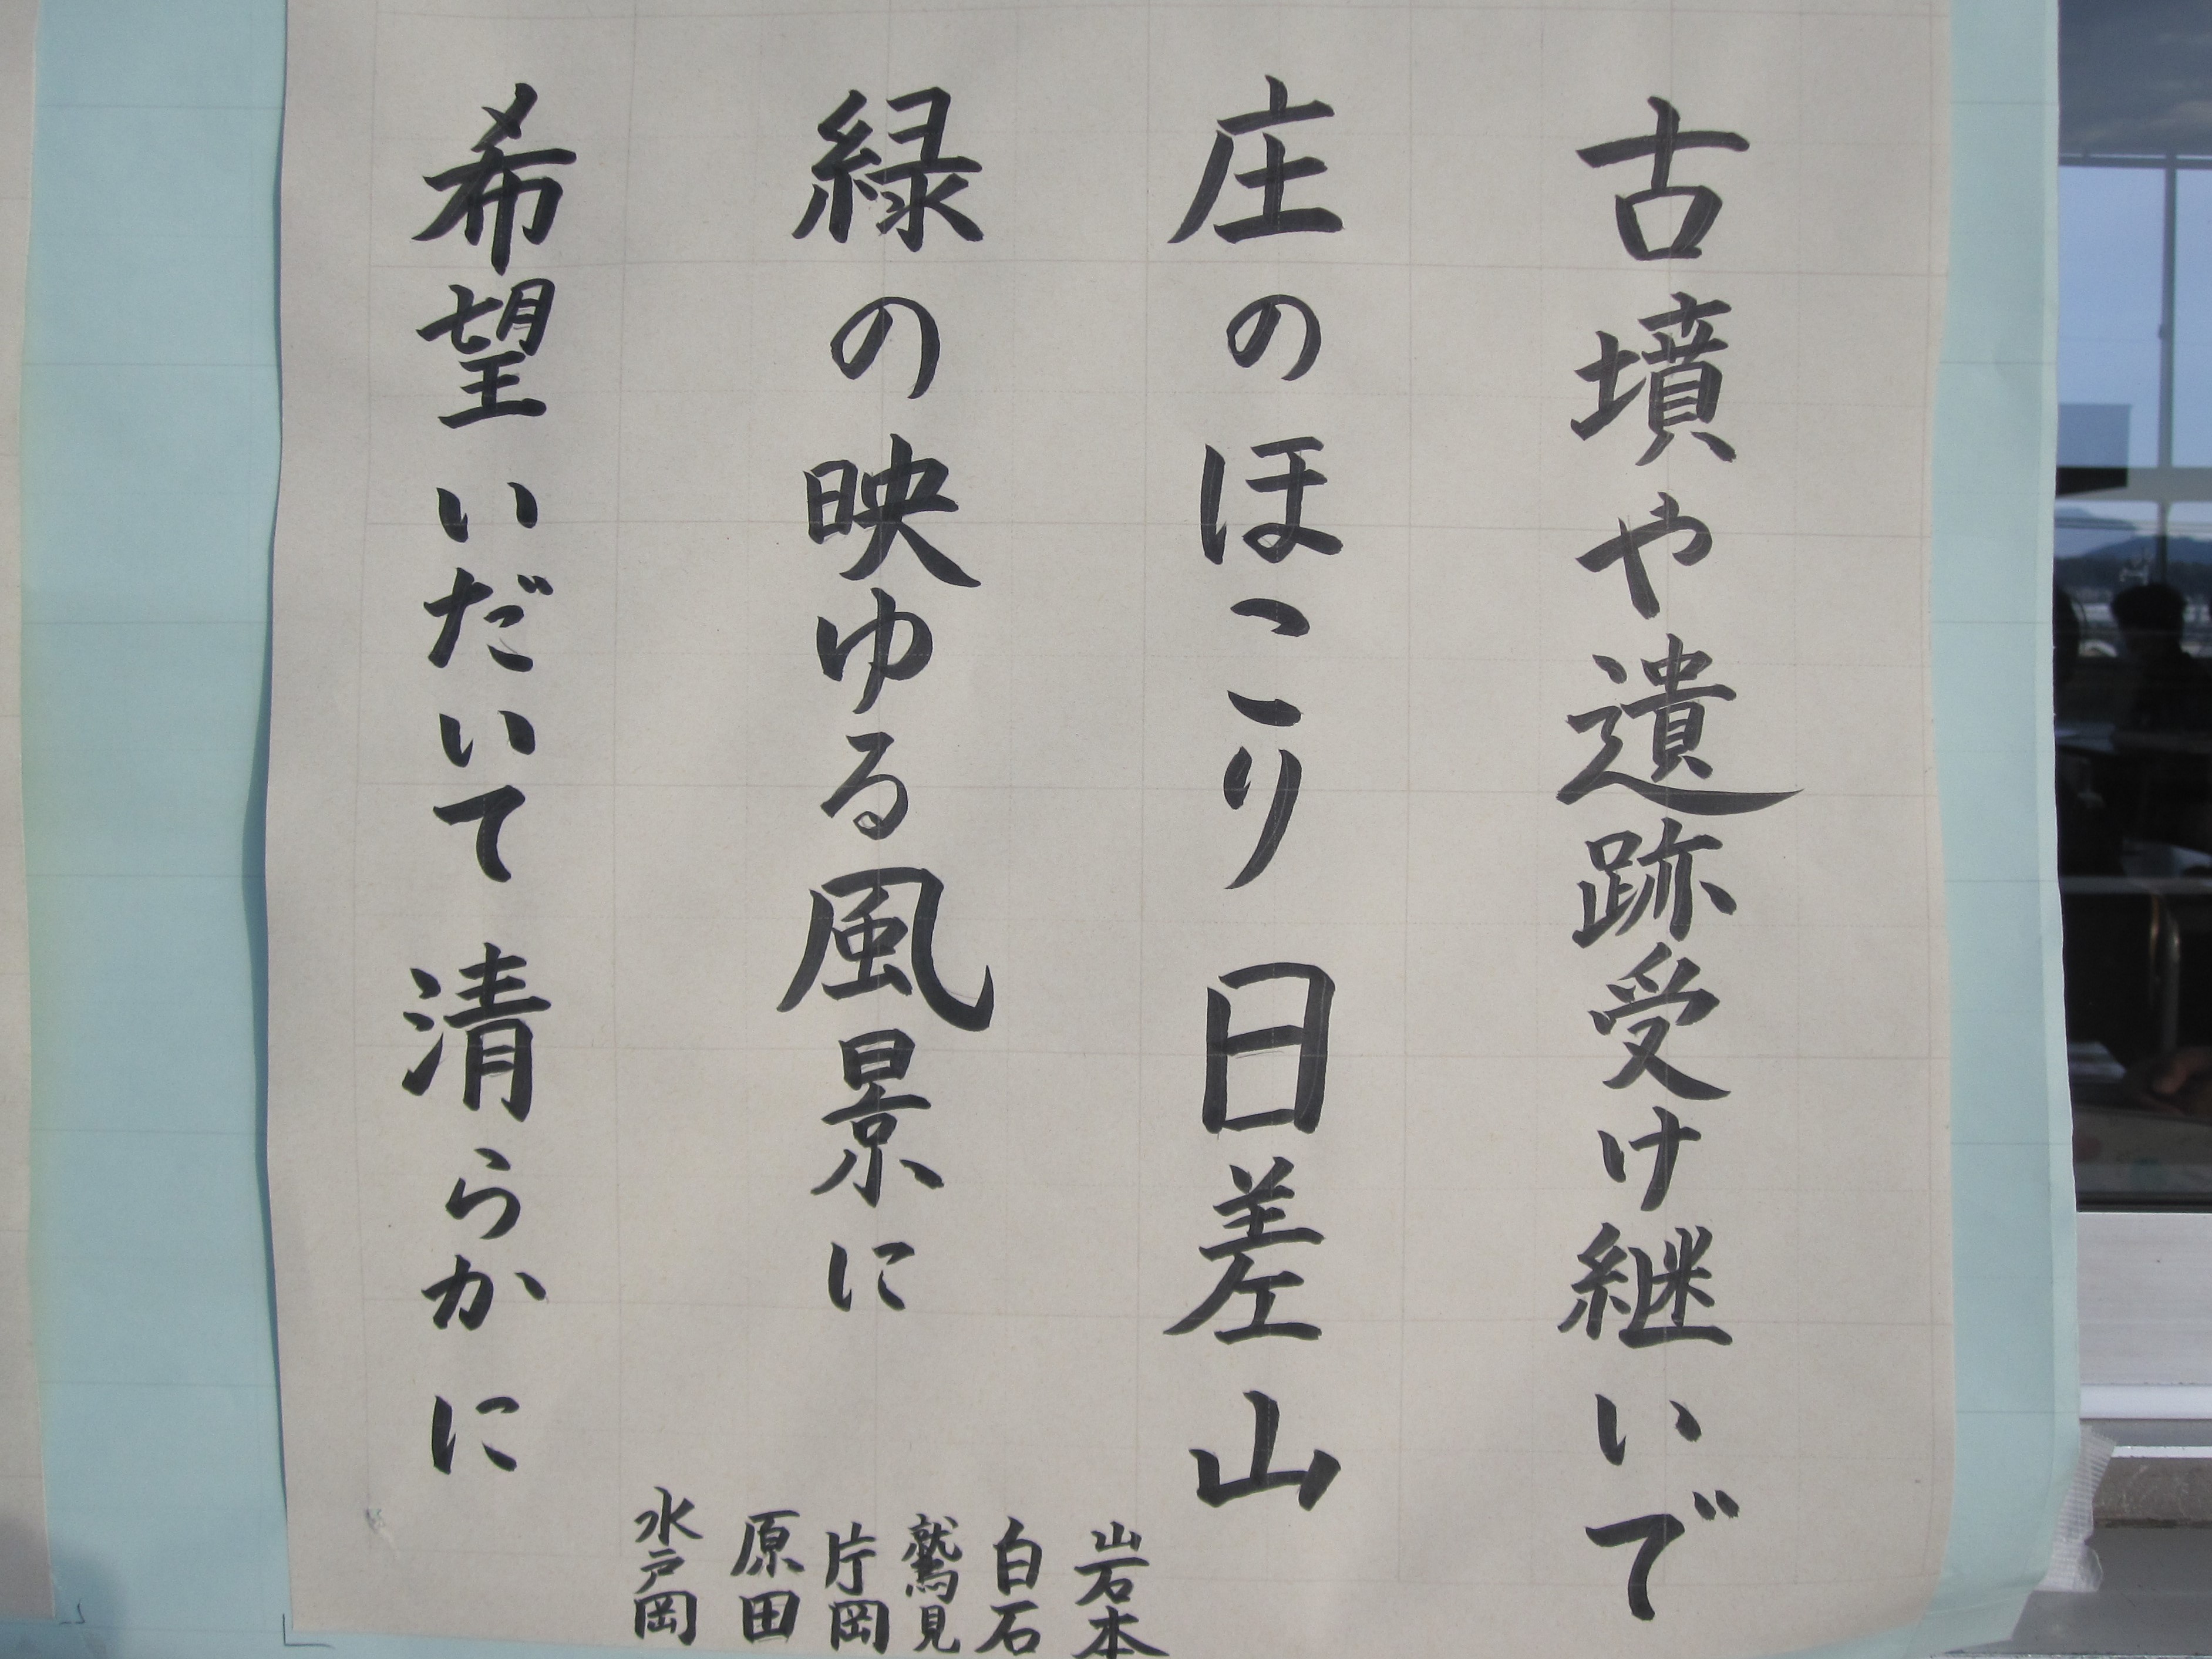 古墳や遺跡受け継いで
庄のほこり日差山
緑の映ゆる風景に
希望いだいて清らかに
岩本
白石
鷲見
片岡
原田
水戸岡